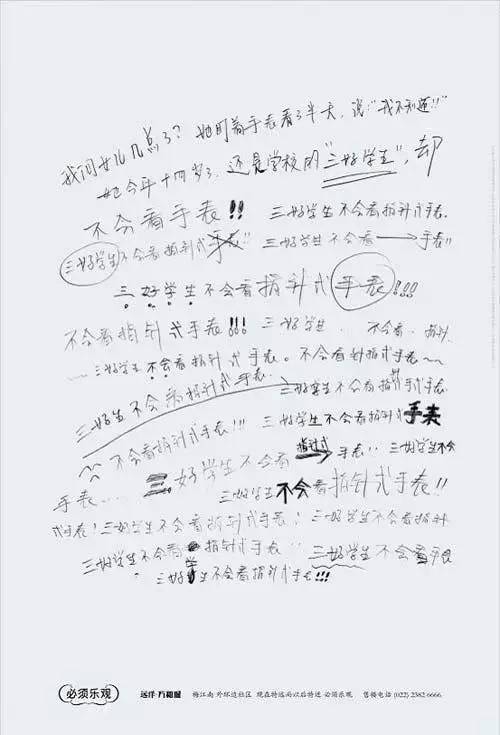 我问女儿几点了？她盯着手表看了半天，说："我不知道!!"
她今年十四岁了，还是学校的"三好学生"，却
不会看手表!!
三好学生不会看指针式手表.
三好学生不会看指针式手表!!
三好学生不会看——→手表!!
三好学生不会看指针式手表!!!
不会看指针式手表!!!
三好学生. 不会看. 指针.
三好学生不会看指针式手表。不会看针指式手表~~
三好生不会看指针式手表.
三好学生不会看指针式手表.
不会看指针式手表!!!
三好学生不会看指针式手表
三好学生不会看指针式手表.. 三好学生不会
手表.... 三好学生不会看指针式手表!!
式手表!三好学生不会看指针式手表! 三好学生不会看指针
三好学生不会看指针式手表.. 三好学生不会看手表
三好学生不会看指针式手表!!!
必须乐观 远洋·万和城 梅江南 外环边社区 现在特远而以后特近 必须乐观 售楼电话 (022) 2382 6666